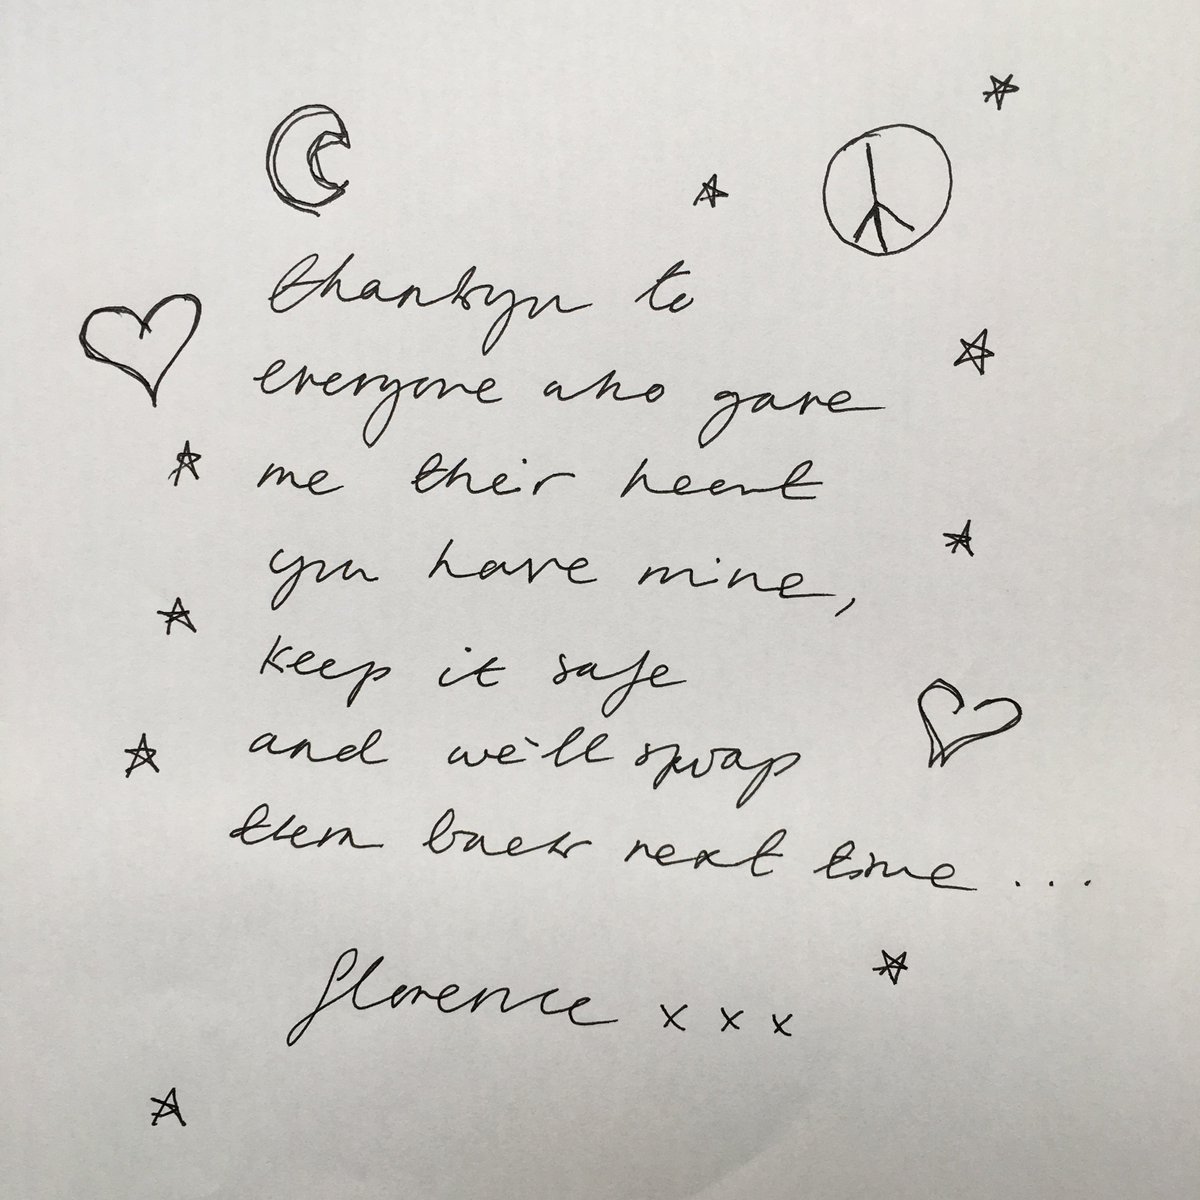 thankyou to
everyone who gave
me their heart
you have mine,
keep it safe
and we'll swap
them back next time...
florence x x x